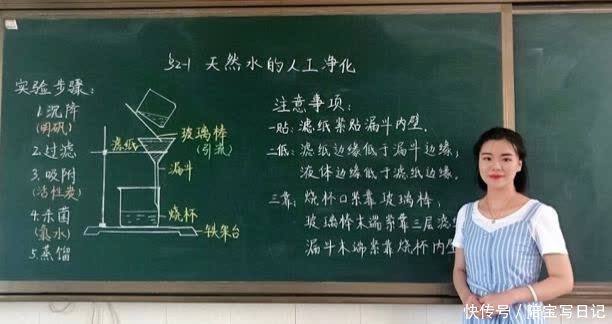 §2-1 天然水的人工净化
实验步骤:
1.沉降
(明矾)
2.过滤
3.吸附
(活性炭)
4.杀菌
(氯水)
5.蒸馏
滤纸
玻璃棒
(引流)
漏斗
烧杯
铁架台
注意事项:
一贴: 滤纸紧贴漏斗内壁.
二低: 滤纸边缘低于漏斗边缘,
液体边缘低于滤纸边缘.
三靠: 烧杯口紧靠玻璃棒,
玻璃棒末端紧靠三层滤
漏斗末端紧靠烧杯内壁
快传号/
宝写日记